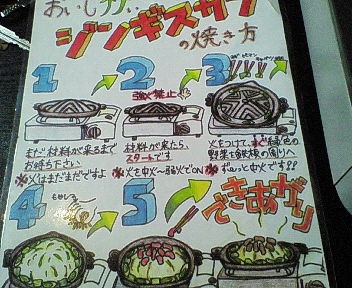 おいしい
ジンギスカン
の焼き方
1
2
3
強火禁止
まだ材料が来るまで
お待ち下さい
※火はまだまだですよ
材料が来たら、
スタートです
※火を中火〜弱火でON
火をつけて、すぐ緑色の
野菜を鉄板の周りへ
※ずーっと中火です!!
4
もやし
5
できあがり